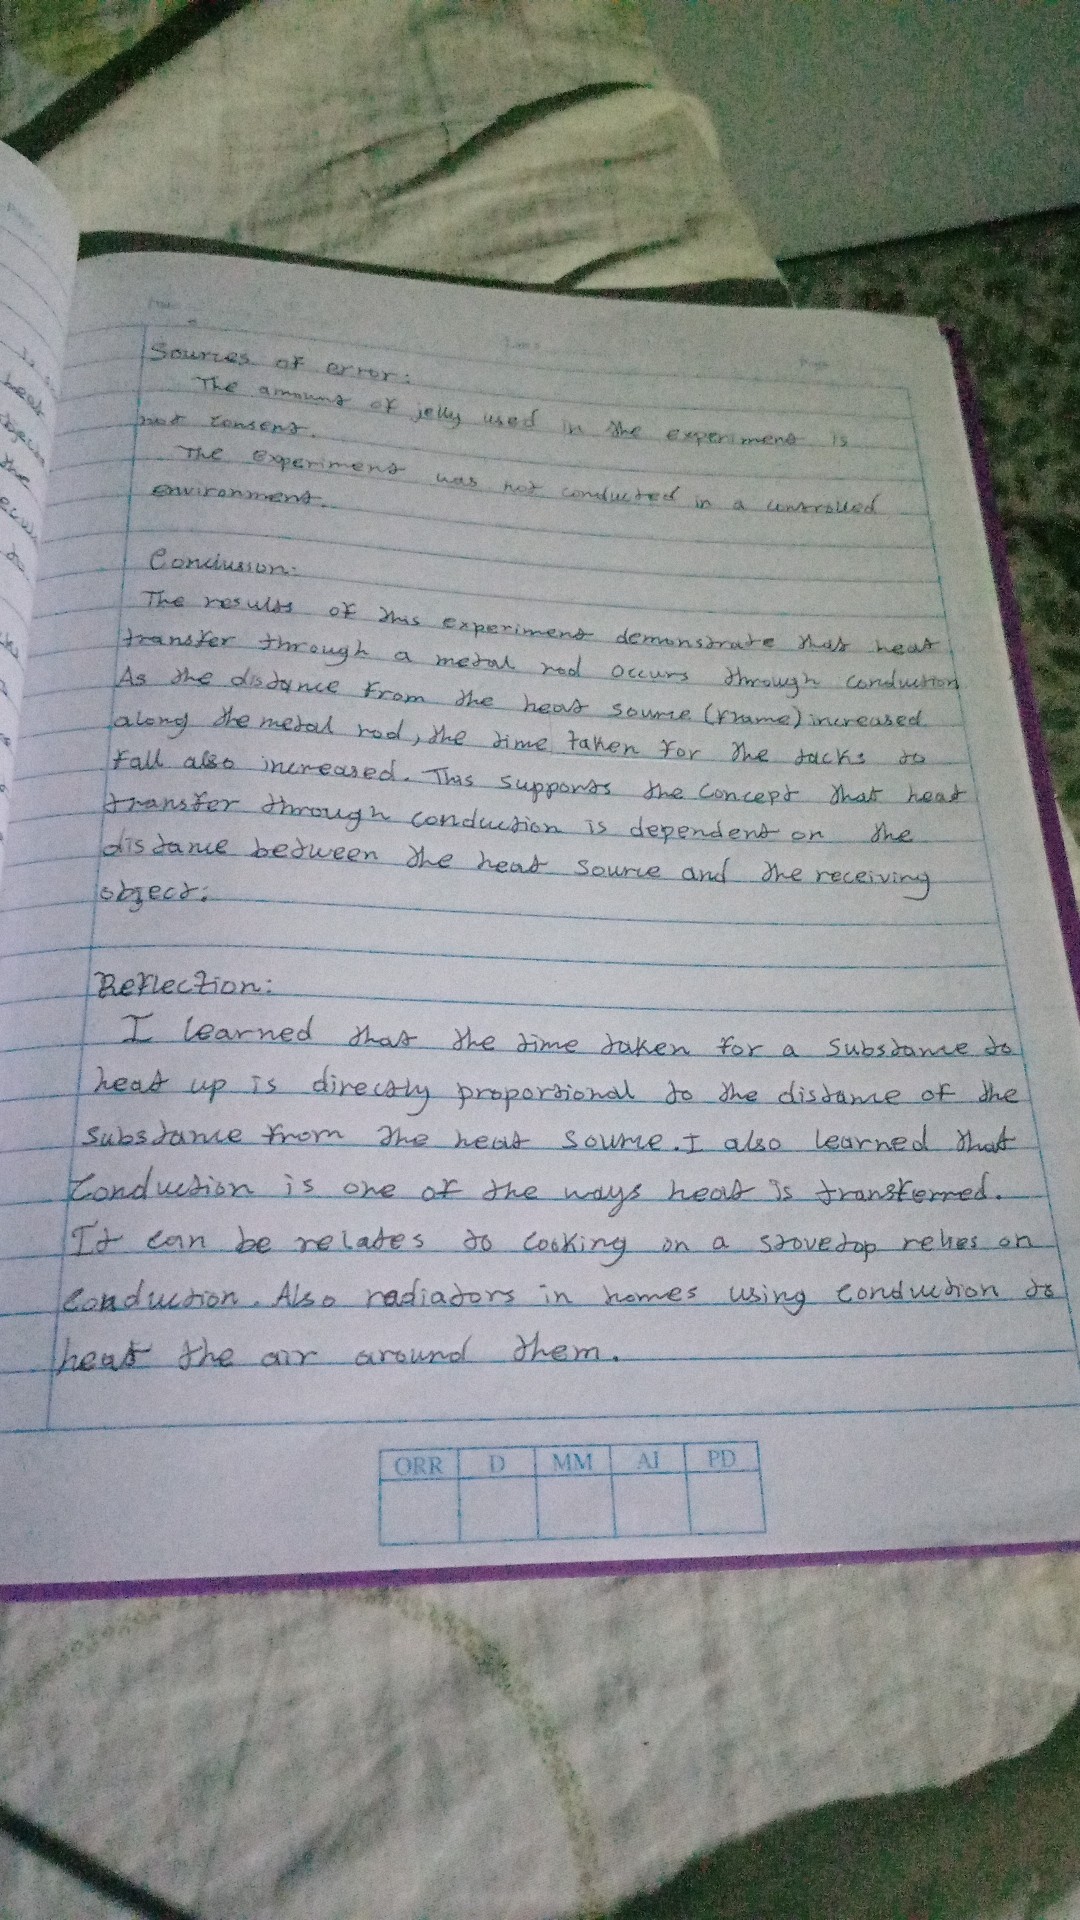 Sources of error:
The amount of jelly used in the experiment is
not consent.
The experiment was not conducted in a controlled
environment.
Conclusion:
The results of this experiment demonstrate that heat
transfer through a metal rod occurs through conduction
As the distance from the heat source (flame) increased
along the metal rod, the time taken for the tacks to
fall also increased. This supports the concept that heat
transfer through conduction is dependent on the
distance between the heat source and the receiving
object.
Reflection:
I learned that the time taken for a substance to
heat up is directly proportional to the distance of the
substance from the heat source. I also learned that
Conduction is one of the ways heat is transferred.
It can be relates to cooking on a stovetop relies on
conduction. Also radiators in homes using conduction to
heat the air around them.
ORR D MM AI PD